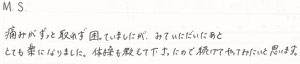 M S
痛みがずっと取れず困っていましたが、みていただいたあと
とても楽になりました。体操も教えて下さったので続けてやってみたいと思います。